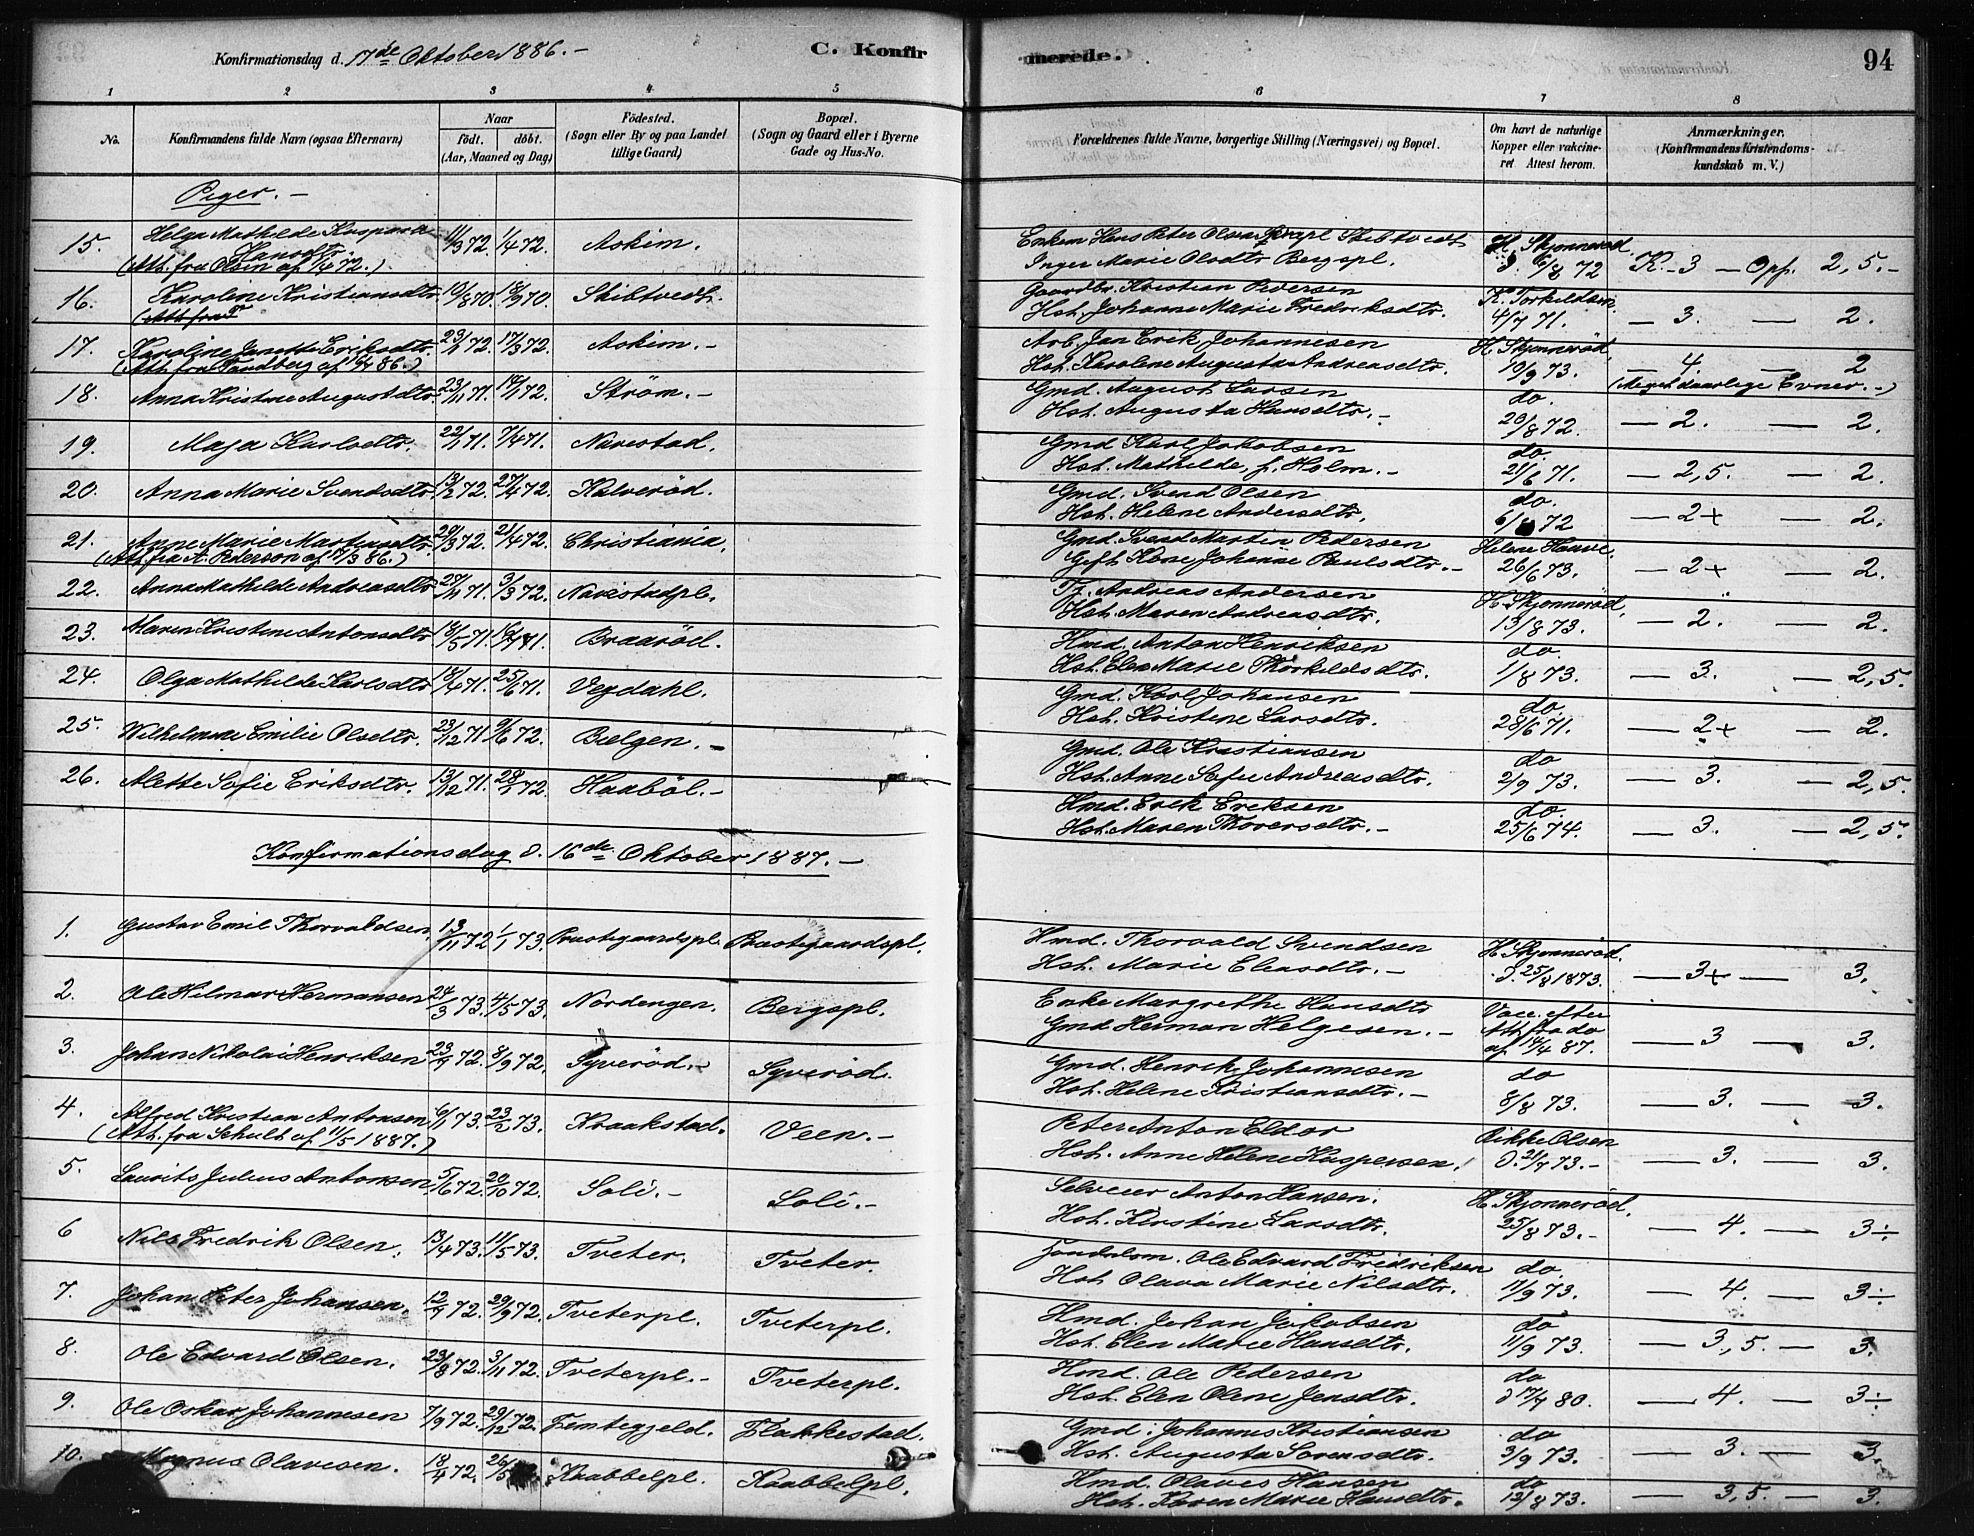 Konfirmationsdag d. 17de Oktober 1886. –
C. Konfir
merede.
94
1 2 3 4 5 6 7 8
No.
Konfirmandens fulde Navn (ogsaa Efternavn)
Naar
födt. döbt.
(Aar, Maaned og Dag)
Födested.
(Sogn eller By og paa Landet
tillige Gaard)
Bopæl.
(Sogn og Gaard eller i Byerne
Gade og Hus-No.
Forældrenes fulde Navne, borgerlige Stilling (Næringsvei) og Bopæl.
Om havt de naturlige
Kopper eller vakcine-
ret Attest herom.
Anmærkninger.
(Konfirmandens Kristendoms-
kundskab m. V.)
Piger. –
15. Helga Mathilde Kaspara 11/3 72. 1/4 72. Askim. Hans Peter Olsen Skibtvedt H. Skjønnerød
Hansdtr.
(Att. fra Olsen af 1/4 72.) Inger Marie Olsdtr Bergspl. d. 6/8 72 K. – 3 – Opf. 2,5. –
16. Karoline Kristiansdtr 19/8 70. 18/9 70. Skibtvedt. Gaardbr. Kristian Pedersen K. Torkildsen
Hst. Johanne Marie Fredriksdtr. 4/7 71. – 3. – 2.
17. Karoline Janette Eriksdtr. 23/1 72. 17/3 72. Askim. – Arb. Jan Erik Johannesen H. Skjønnerød
(Att. fra Sandberg af 14/4 86.) Hst. Karolene Augusta Andreasdtr. 19/9 73. – 4. – 2
(Meget daarlige Evner. –)
18. Anna Kristine Augustdtr. 23/11 71. 14/1 72. Strøm. – Gmd. August Larsen do.
Hst. Augusta Hansdtr. – 20/8 72. – 2. – 2.
19. Maja Karlsdtr. 22/1 71. 7/4 71. Navestad. Gmd Karl Jakobsen do.
Hst. Mathilde, f. Holm. – 21/6 71. – 2,5. – 2.
20. Anna Marie Svendsdtr. 13/2 72. 27/4 72. Kalverød. Gmd. Svend Olsen do.
Hst. Helene Andersdtr. 72 – 2+ – 2.
21. Anne Marie Martinsdtr. 20/3 72. 21/4 72. Christiania. Gmd. Svend Martin Pedersen Helene Hauve.
(Att. fra A. Pederson af 17/3 86.) Gift Kone Johanne Paulsdtr. – 26/6 73. – 2+ – 2.
22. Anna Mathilde Andreasdtr 27/11 71. 3/3 72. Navestadpl. Tj. Andreas Andersen H. Skjønnerød.
Hst. Maren Andreasdtr. 13/8 73. – 2. – 2.
23. Maren Kristine Antonsdtr 18/5 71. Braarød. Hmd. Anton Henriksen do.
Hst. Elen Marie Thorkildsdtr. 1/8 73. – 3. – 2,5.
24. Olga Mathilde Karlsdtr 18/4 71. 25/6 71. Vegdahl. Gmd. Karl Johansen do.
Hst. Kristene Larsdtr. 28/6 71. – 2+ – 2.
25. Wilhelmine Emilie Olsdtr. 23/12 71 9/6 72. Bælgen. – Gmd. Ole Kristiansen do
Hst. Anne Sofie Andreasdtr. 2/9 73. – 3. – 2,5.
26. Alette Sofie Eriksdtr. 13/12 71. 28/1 72. Haabøl. – Hmd. Erik Eriksen do.
Hst. Maren Thoversdtr. – 25/6 74. – 3. – 2,5.
Konfirmationsdag d. 16de Oktober 1887. –
1. Gustav Emil Thorvaldsen. 13/11 72 1/1 73. Prestegaardspl. Prestegaardspl. Hmd. Thorvald Svendsen H. Skjønnerød.
Hst. Marie Eleasdtr. – d. 25/8 1873. – 3+ – 3.
2. Ole Hilmar Hermansen 24/3 73. 4/5 73. Nordengen. Bergspl. Enke Margrethe Hansdtr Vacc. efter
Gmd. Herman Helgesen. – Att. fra do
af 14/4 87. – 3 – 3.
3. Johan Nikolai Henriksen 23/7 72. 8/9 72. Syverød. – Syverød. Gmd. Henrik Johannesen do
Hst. Helene Kristiansdtr. – 8/8 73. – 3. – 3.
4. Alfred Kristian Antonsen 6/1 73. 23/2 73. Kraakstad. Veen. – Peter Anton Eldor Rikke Olsen
(Att. fra Schult af 11/5 1887.) Hst. Anne Helene Kaspersen. d. 21/7 73. – – 3. – 3.
5. Laurits Julius Antonsen 5/6 72. 20/10 72. Soli. – Soli. – Selveier Anton Hansen. H. Skjønnerød.
Hst. Kirstine Larsdtr. 25/8 73. – – 4. – 3÷
6 Nils Fredrik Olsen. 13/4 73. 11/5 73. Tveter. Tveter. Handelsm. Ole Edvard Fredriksen do.
Hst Olava Marie Nilsdtr. 11/9 73. – 4. – 3÷
7. Johan Peter Johansen. 12/7 72. 29/9 72. Tveterpl. Tveterpl. Hmd. Johan Jakobsen do
Hst. Elen Marie Hansdtr. 11/9 73. – 3,5. – 3.
8. Ole Edvard Olsen. 23/8 72. 3/11 72. Tveterpl. – Tveterpl. Hmd. Ole Pedersen do
Hst. Elen Olene Jensdtr. d 17/7 80. – 4. – 3÷
9. Ole Oskar Johannesen 7/9 72. 29/12 72. Femtegjeld. Flakkestad. Gmd. Johannes Kristiansen do
Hst. Augusta Sorensdtr. 3/9 73. – 3. – 3.
10. Magnus Olavesen. 18/4 72. 26/5 Knabbelpl. Knabbelpl. Hmd. Olaves Hansen do
Hst. Karen Marie Hansdtr. 12/8 73. – 3,5. – 3.